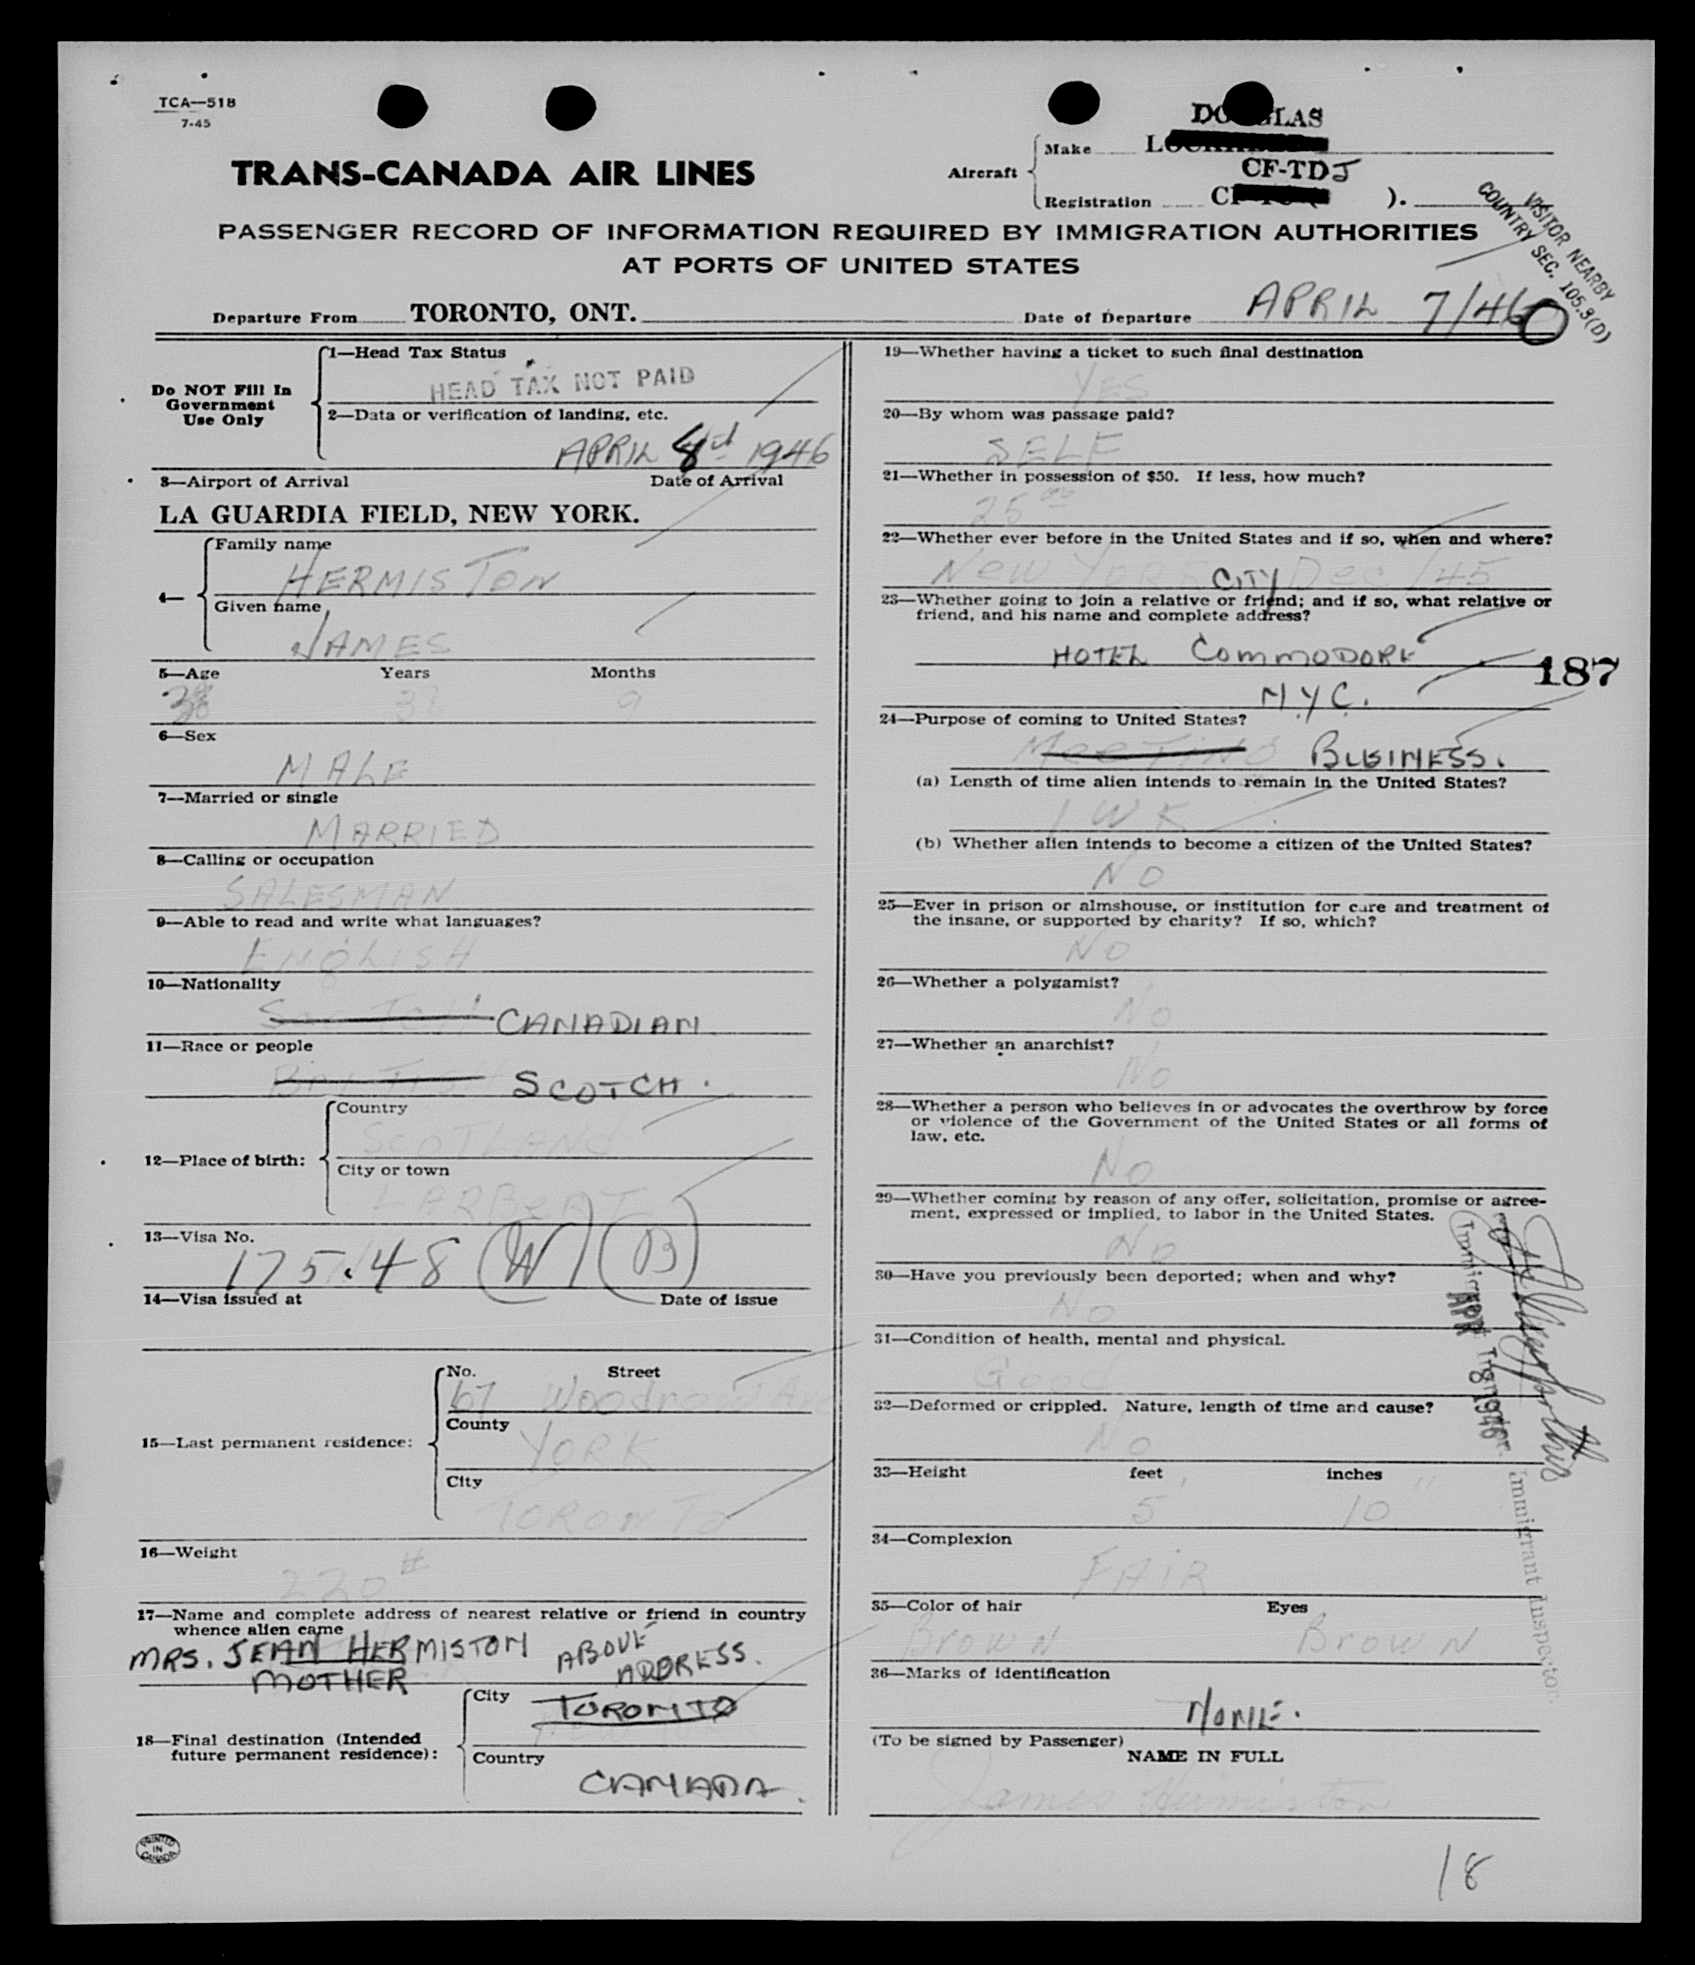 TCA—518
7-45
DOUGLAS
Aircraft
Make
CF-TDJ
Registration ).
TRANS-CANADA AIR LINES
VISITOR NEARBY
COUNTRY SEC. 105.3(D)
PASSENGER RECORD OF INFORMATION REQUIRED BY IMMIGRATION AUTHORITIES
AT PORTS OF UNITED STATES
Departure From TORONTO, ONT. Date of Departure APRIL 7/46
Do NOT Fill In
Government
Use Only
1—Head Tax Status
HEAD TAX NOT PAID
2—Data or verification of landing, etc.
APRIL 8 1946
3—Airport of Arrival Date of Arrival
LA GUARDIA FIELD, NEW YORK.
4—
Family name
HERMISTON
Given name
JAMES
5—Age Years Months
38 9
6—Sex
MALE
7—Married or single
MARRIED
8—Calling or occupation
SALESMAN
9—Able to read and write what languages?
ENGLISH
10—Nationality
CANADIAN
11—Race or people
SCOTCH.
12—Place of birth:
Country
SCOTLAND
City or town
LARBERT
13—Visa No.
175.48 (W) (B)
14—Visa issued at Date of issue
15—Last permanent residence:
No. Street
67
County
YORK
City
TORONTO
16—Weight
220 #
17—Name and complete address of nearest relative or friend in country
whence alien came
MRS. JEAN HERMISTON ABOVE
MOTHER ADDRESS.
18—Final destination (Intended
future permanent residence):
City
TORONTO
Country
CANADA.
PRINTED
IN
CANADA
19—Whether having a ticket to such final destination
YES
20—By whom was passage paid?
SELF
21—Whether in possession of $50. If less, how much?
25 00
22—Whether ever before in the United States and if so, when and where?
NEW YORK CITY Dec /45
23—Whether going to join a relative or friend; and if so, what relative or
friend, and his name and complete address?
HOTEL COMMODORE
187
N.Y.C.
24—Purpose of coming to United States?
MEETING BUSINESS.
(a) Length of time alien intends to remain in the United States?
1 WK
(b) Whether alien intends to become a citizen of the United States?
NO
25—Ever in prison or almshouse, or institution for care and treatment of
the insane, or supported by charity? If so, which?
NO
26—Whether a polygamist?
NO
27—Whether an anarchist?
NO
28—Whether a person who believes in or advocates the overthrow by force
or violence of the Government of the United States or all forms of
law, etc.
NO
29—Whether coming by reason of any offer, solicitation, promise or agree-
ment, expressed or implied, to labor in the United States.
NO
30—Have you previously been deported; when and why?
NO
31—Condition of health, mental and physical.
Good
32—Deformed or crippled. Nature, length of time and cause?
NO
33—Height feet inches
5' 10"
34—Complexion
FAIR
35—Color of hair Eyes
Brown Brown
36—Marks of identification
NONE.
(To be signed by Passenger)
NAME IN FULL
James Hermiston
APR 8 1946
Immigrant Inspector.
18